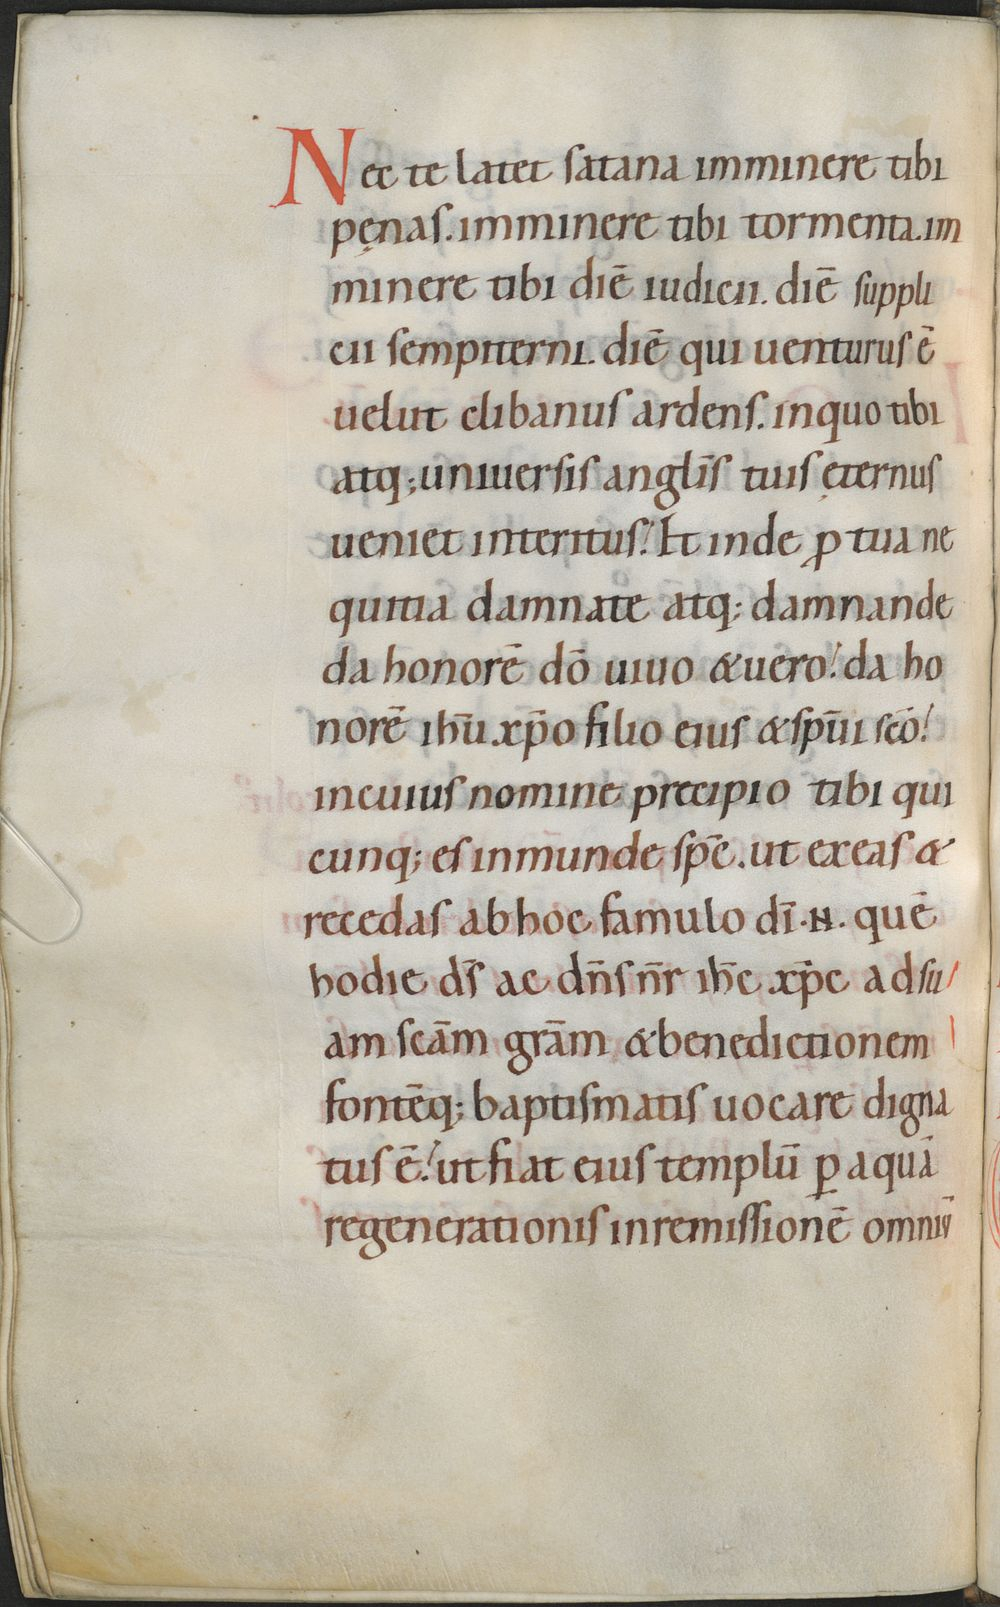 Nec te latet satana imminere tibi
pęnas. imminere tibi tormenta. im
minere tibi diē iudicii. diē suppli
cii sempiterni. diē qui uenturus ē
uelut clibanus ardens. in quo tibi
atq; uniuersis anglīs tuis ęternus
ueniet interitus. Et inde ꝓ tua ne
quitia damnate atq; damnande
da honorē dō uiuo & uero. da ho
norē ihū xp̄o filio eius & sp̄ui scō.
in cuius nomine precipio tibi qui
cunq; es inmunde sp̄c. ut exeas &
recedas ab hoc famulo dī .N. quē
hodie ds̄ ac dn̄s nr̄ ihc̄ xp̄c ad su
am scām grām & benedictionem
fontēq; baptismatis uocare digna
tus ē. ut fiat eius templū ꝑ aquā
regenerationis in remissionē omniū